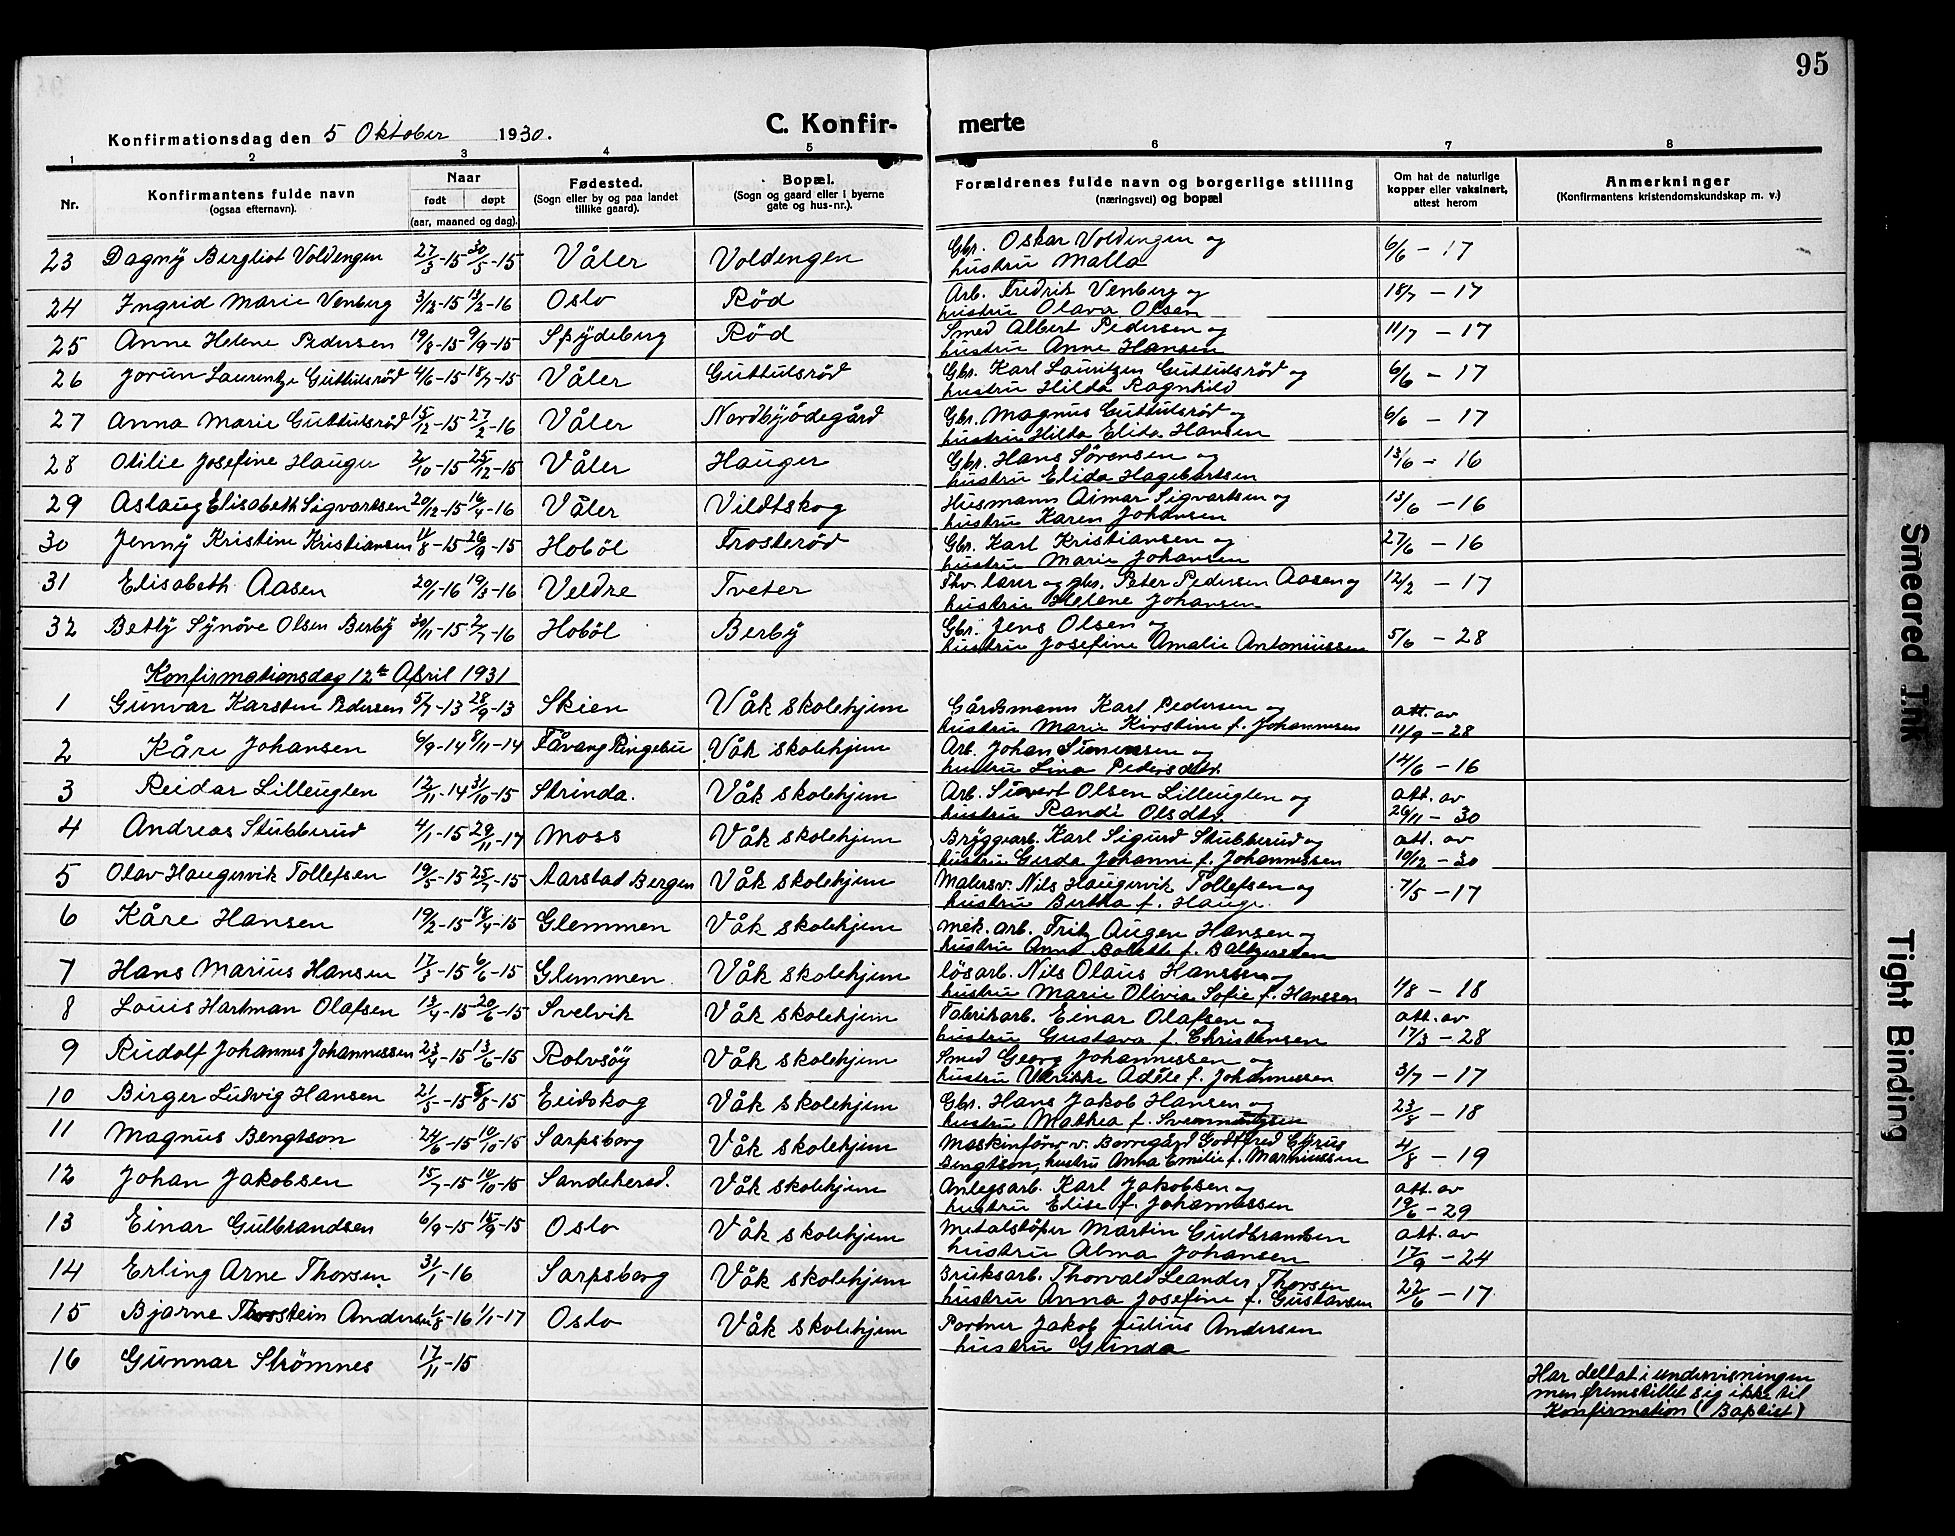 95
Konfirmationsdag den 5 Oktober 1930.
C. Konfir- merte
1 2 3 4 5 6 7 8
Nr.
Konfirmantens fulde navn
(ogsaa efternavn).
Naar
født og døpt
(aar, maaned og dag).
Fødested.
(Sogn eller by og paa landet
tillike gaard).
Bopæl.
(Sogn og gaard eller i byerne
gate og hus-nr.).
Forældrenes fulde navn og borgerlige stilling
(næringsvei) og bopæl
Om hat de naturlige
kopper eller vaksinert,
attest herom
Anmerkninger
(Konfirmantens kristendomskundskap m. v.)
23 Dagny Bergliot Voldengen 27/3-15 30/5-15 Våler Voldengen Gbr. Oskar Voldengen og 6/6 - 17
hustru Malla
24 Ingrid Marie Venberg 3/12-15 13/2-16 Oslo Rød Arb. Fredrik Venberg og 18/7 - 17
hustru Olava Olsen
25 Anne Helene Pedersen 19/8-15 9/9-15 Spydeberg Rød Smed Albert Pedersen og 11/7 - 17
hustru Anne Hansen
26 Jorun Laurentze Guttulsrød 4/6-15 18/7-15 Våler Guttulsrød Gbr. Karl Lauritzen Guttulsrød og 6/6 - 17
hustru Hilda Ragnhild
27 Anna Marie Guttulsrød 15/12-15 27/2-16 Våler Nordbyødegård Gbr. Magnus Guttulsrød og 6/6 - 17
hustru Hilda Elida Hansen
28 Otilie Josefine Hauger 2/10-15 25/12-15 Våler Hauger Gbr. Hans Sørensen og 13/6 - 16
hustru Elida Hagebartsen
29 Aslaug Elisabeth Sigvartsen 20/12-15 16/4-16 Våler Vildtskog Husmann Aimar Sigvartsen og 13/6 - 16
hustru Karen Johansen
30 Jenny Kristine Kristiansen 11/8-15 26/9-15 Hobøl Frosterød Gbr. Karl Kristiansen og 27/6 - 16
hustru Marie Johansen
31 Elisabeth Aasen 20/1-16 19/3-16 Veldre Tveter Fhv. lærer og gbr. Peter Pedersen Aasen og 12/2 - 17
hustru Helene Johansen
32 Betty Synøve Olsen Berby 30/11-15 2/7-16 Hobøl Berby Gbr. Jens Olsen og
hustru Josefine Amalie Antoniussen 5/6 - 28
Konfirmationsdag 12te April 1931
1 Gunvar Karsten Pedersen 5/7-13 28/9-13 Skien Våk skolehjem Gårdsmann Karl Pedersen og att. av
hustru Marie Kirstine f. Johannesen 11/9 - 28
2 Kåre Johansen 6/9-14 8/11-14 Fåvang Ringebu Våk skolehjem Arb. Johan Simensen og
hustru Lina Pedersdtr. 14/6 - 16
3 Reidar Lilleuglen 12/11-14 31/10-15 Strinda. Våk skolehjem Arb. Sivert Olsen Lilleuglen og att. av
hustru Randi Olsdtr. 26/11 - 30
4 Andreas Stubberud 4/1-15 29/11-17 Moss Våk skolehjem Bryggearb. Karl Sigurd Stubberud og att. av
hustru Gerda Johanne f. Johannessen 10/12 - 30
5 Olav Haugervik Tollefsen 19/5-15 25/7-15 Aarstad Bergen Våk skolehjem Malersv. Nils Haugervik Tollefsen og 7/5 - 17
hustru Bertha f. Hauge.
6 Kåre Hansen 19/2-15 18/4-15 Glemmen Våk skolehjem Mek. arb. Fritz Augen Hansen og
hustru Anna Bolette f. Baltzersen
7 Hans Marius Hansen 17/3-15 6/6-15 Glemmen Våk skolehjem løsarb. Nils Olaus Hanssen og
hustru Marie Olivia Sofie f. Hanssen 1/8 - 18
8 Louis Hartman Olafsen 13/4-15 20/6-15 Svelvik Våk skolehjem Fabrikarb. Einar Olafsen og att. av
hustru Gustava f. Christensen 17/3 - 28
9 Rudolf Johannes Johannessen 23/4-15 13/6-15 Rolvsøy Våk skolehjem Smed Georg Johannessen og
hustru Ulrikke Adéle f. Johannessen 3/7 - 17
10 Birger Ludvig Hansen 21/5-15 8/8-15 Eidskog Våk skolehjem Gbr. Hans Jakob Hansen og 23/8 - 18
hustru Mathea f. Svenningsen
11 Magnus Bengtson 24/6-15 10/10-15 Sarpsborg Våk skolehjem Maskinfører v. Borregård Godtfred Cyrus 4/8 - 19
Bengtson, hustru Anna Emilie f. Marniussen
12 Johan Jakobsen 15/7-15 10/10-15 Sandeherad. Våk skolehjem Anlegsarb. Karl Jakobsen og att. av
hustru Elise f. Johannessen 19/6 - 29
13 Einar Gulbrandsen 6/9-15 15/9-15 Oslo Våk skolehjem Metalstøper Martin Guldbrandsen att. av
hustru Alma Johansen 17/9 - 24
14 Erling Arne Thorsen 31/1-16 Sarpsborg Våk skolehjem Bruksarb. Thorvald Leander Thorsen 22/6 - 17
hustru Anna Josefine f. Gustavsen
15 Bjarne Thorstein Andersen 1/8-16 1/1-17 Oslo Våk skolehjem Portner Jakob Julius Andersen
hustru Glinda
16 Gunnar Strømnes 17/11-15
Har deltat i undervisningen
men fremstillet sig ikke til
Konfirmation (Baptist)
Smeared Ink
Tight Binding